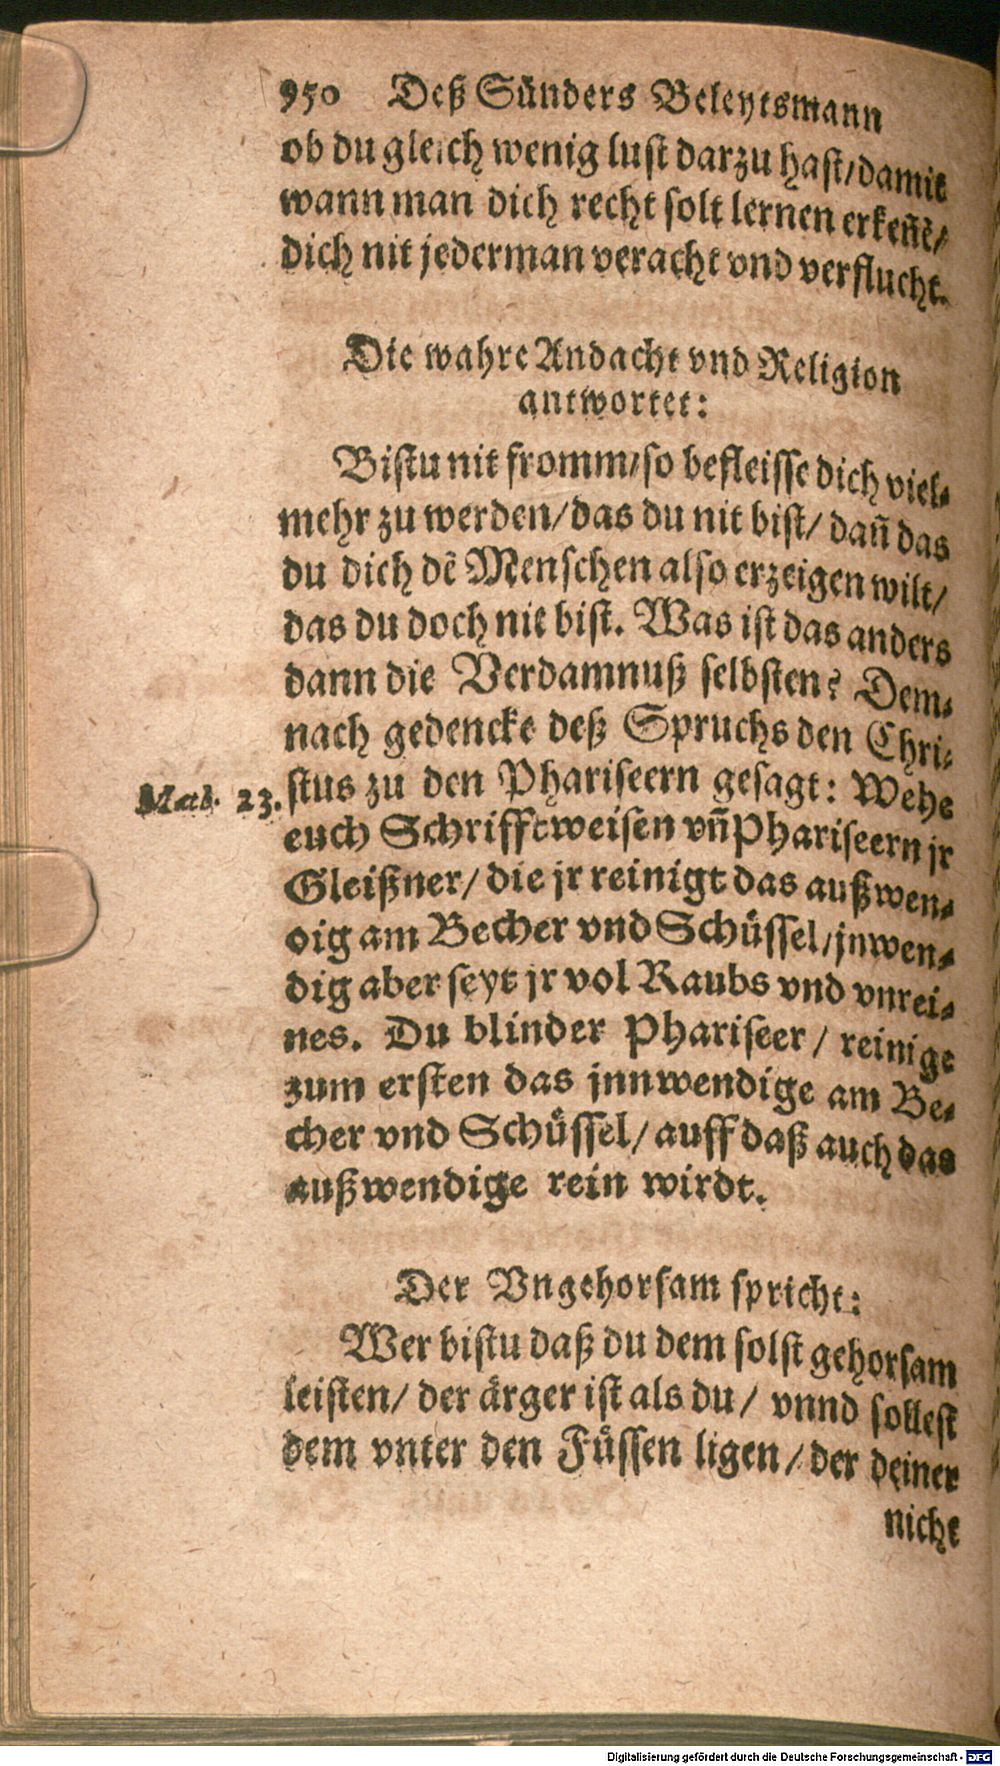 950 Deß Sünders Beleytsmann
ob du gleich wenig lust darzu hast/damit
wann man dich recht solt lernen erkeñẽ/
dich nit jederman veracht vnd verflucht.
Die wahre Andacht vnd Religion
antwortet:
Bistu nit fromm/so befleisse dich viel⸗
mehr zu werden/das du nit bist/ dañ das
du dich dẽ Menschen also erzeigen wilt/
das du doch nit bist. Was ist das anders
dann die Verdamnuß selbsten? Dem⸗
nach gedencke deß Spruchs den Chri⸗
Mat. 23. stus zu den Phariseern gesagt: Wehe
euch Schrifftweisen vñ Phariseern jr
Gleißner/ die jr reinigt das außwen⸗
dig am Becher vnd Schüssel/jnwen⸗
dig aber seyt jr vol Raubs vnd vnrei⸗
nes. Du blinder Phariseer / reinige
zum ersten das jnnwendige am Be⸗
cher vnd Schüssel/auff daß auch das
außwendige rein wirdt.
Der Vngehorsam spricht:
Wer bistu daß du dem solst gehorsam
leisten/ der ärger ist als du/ vnnd sollest
dem vnter den Füssen ligen/der deiner
nicht
Digitalisierung gefördert durch die Deutsche Forschungsgemeinschaft - DFG